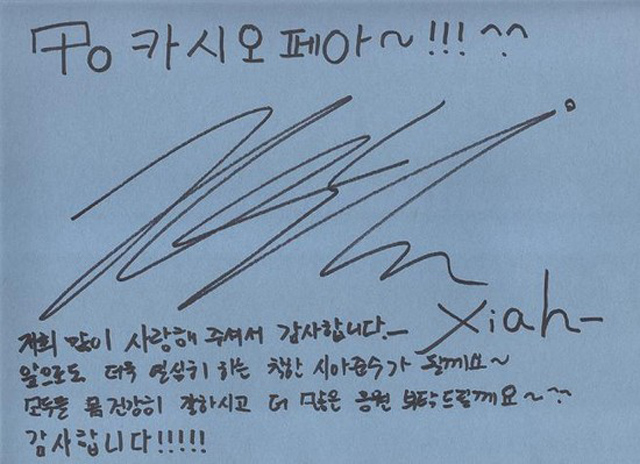 To 카시오페아~!!! ^^
xiah-
저희 많이 사랑해 주셔서 감사합니다.-
앞으로도 더욱 열심히 하는 착한 시아준수가 될께요~
모두들 몸 건강히 잘하시고 더 많은 응원 부탁드릴께요~^^
감사합니다!!!!!